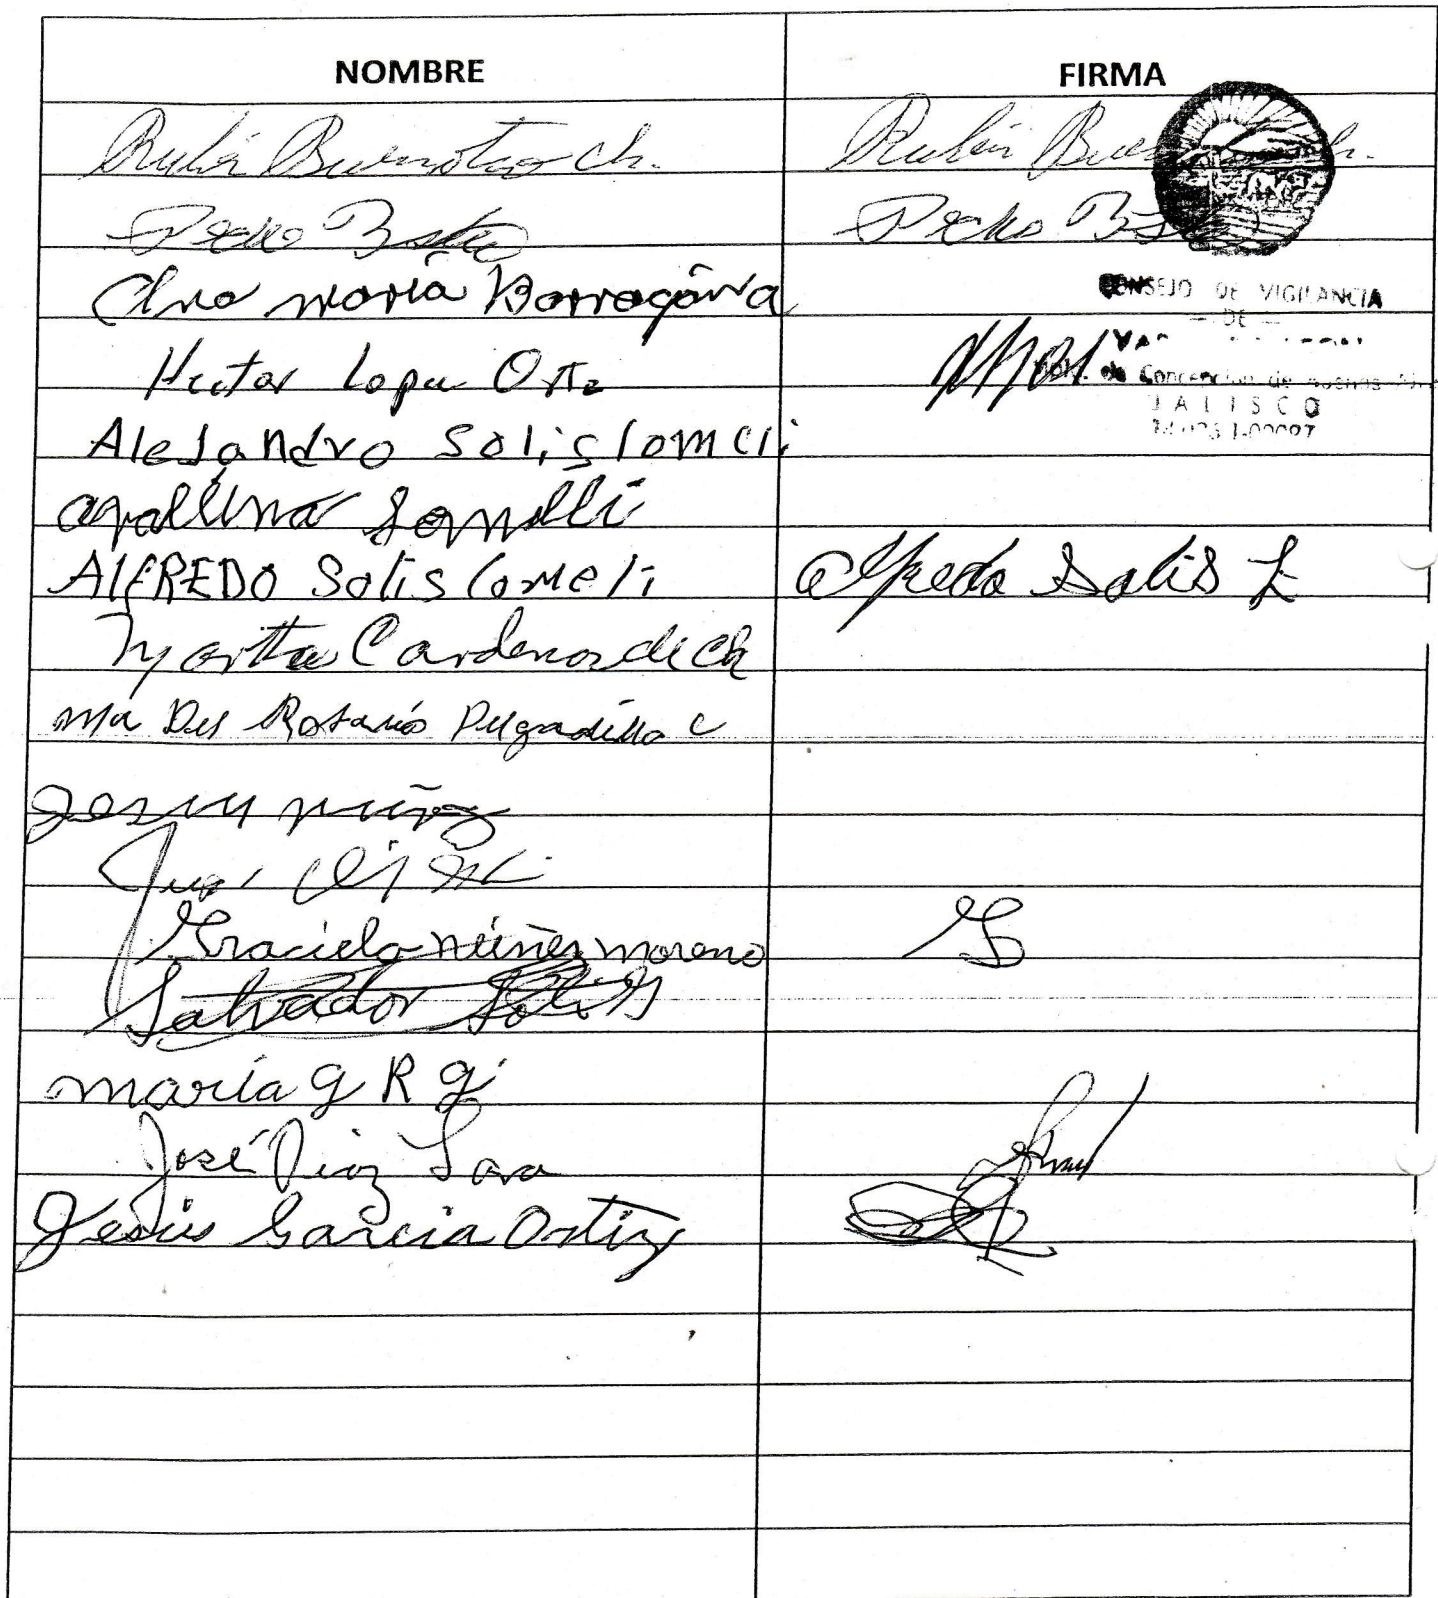 NOMBRE FIRMA
Rubén Buenrostro Ch. Rubén Bue Ch.
Pedro Pedro
Ana maría Barragán
CONSEJO DE VIGILANCIA
DE
Hector Lopez Ortiz
Concepcion de Buenos
JALISCO
Alejandro Solis lomeli
lomelli
AlFREDO Solis lomeli Alfredo Solis L
Martha Cardenas de Ch
Ma Del Rosario Delgadillo C
Jesus nuñez
Juan
Graciela núñez moreno G
Salvador Solis
maría g R g
José Diaz Lara
Jesús Garcia Ortiz